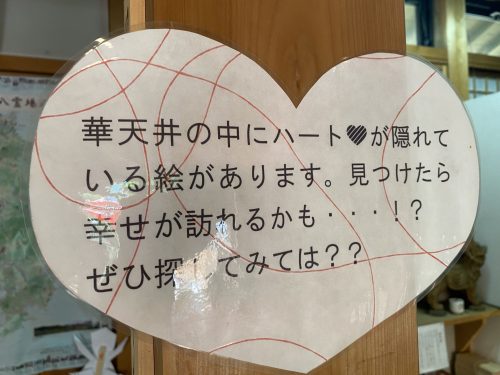 華天井の中にハート♥が隠れて
いる絵があります。見つけたら
幸せが訪れるかも・・・!?
ぜひ探してみては??
八雲